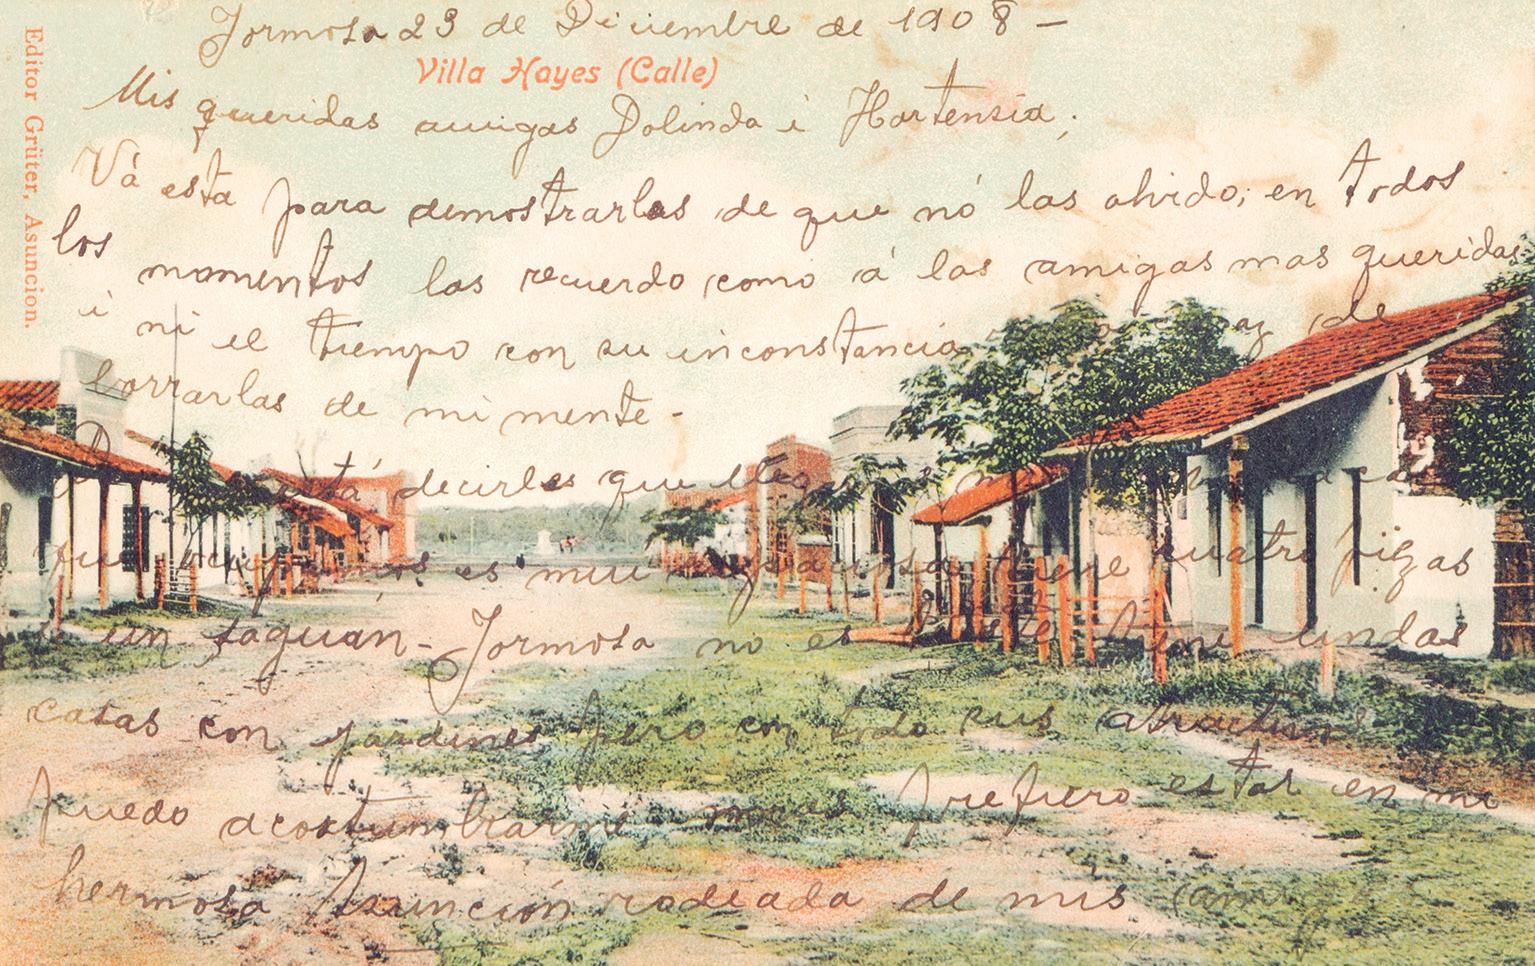 Formosa 23 de Diciembre de 1908 —
Villa Hayes (Calle)
Mis queridas amigas Dolinda i Hortensia;
Vá esta para demostrarlas de que nó las olvido; en todos
los momentos las recuerdo como á las amigas mas queridas
i ni el tiempo con su inconstancia de
borrarlas de mi mente -
decirles que
es mui tiene cuatro piezas
un saguan - Formosa no es tiene lindas
casas con jardines pero con todo sus atractivos
puedo acostumbrarme prefiero estar en mi
hermosa Asunción rodeada de mis
Editor Grüter, Asuncion.